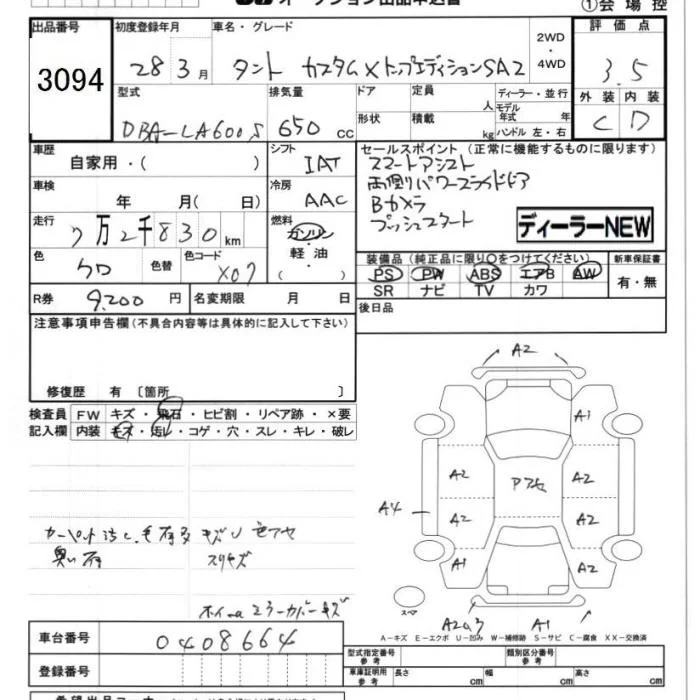 オークション出品申込書
①会場控
出品番号 初度登録年月 車名・グレード 2WD 評価点
3094 28 3月 タント カスタムXトップエディションSA2 ・4WD 3.5
型式 排気量 ドア 定員 ディーラー・並行 外装 内装
DBA-LA600S 650 cc 形状 積載 人 kg モデル年式 年 ハンドル 左・右 C D
車歴 シフト セールスポイント (正常に機能するものに限ります)
自家用・( ) IAT スマートアシスト
車検 冷房 両側パワースライドドア
年 月( 日) AAC Bカメラ
走行 燃料 プッシュスタート
7万2千830km ガソリン ディーラーNEW
色 色替 色コード 軽油 装備品 (純正品に限り○をつけてください) 新車保証書
クロ X07 ・( ) PS PW ABS エアB AW 有・無
R券 9,200円 名変期限 月 日 SR ナビ TV カワ
注意事項申告欄(不具合内容等は具体的に記入して下さい) 後日品
修復歴 有 〔箇所 〕
検査員 FW キズ・飛石・ヒビ割・リペア跡・×要
記入欄 内装 キズ・汚レ・コゲ・穴・スレ・キレ・破レ
A2
A1
A2 A2
A4 A2 A2
A1 A2
カーペット汚し、毛有 キズU 色アセ
臭い有 スリキズ
ホイール ミラーカバーキズ
スペア
A1
A-キズ E-エクボ U-凹み W-補修跡 S-サビ C-腐食 XX-交換済
車台番号 0408664
型式指定番号 参考 類別区分番号 参考
登録番号 車庫証明用 参考 長さ cm 幅 cm 高さ cm